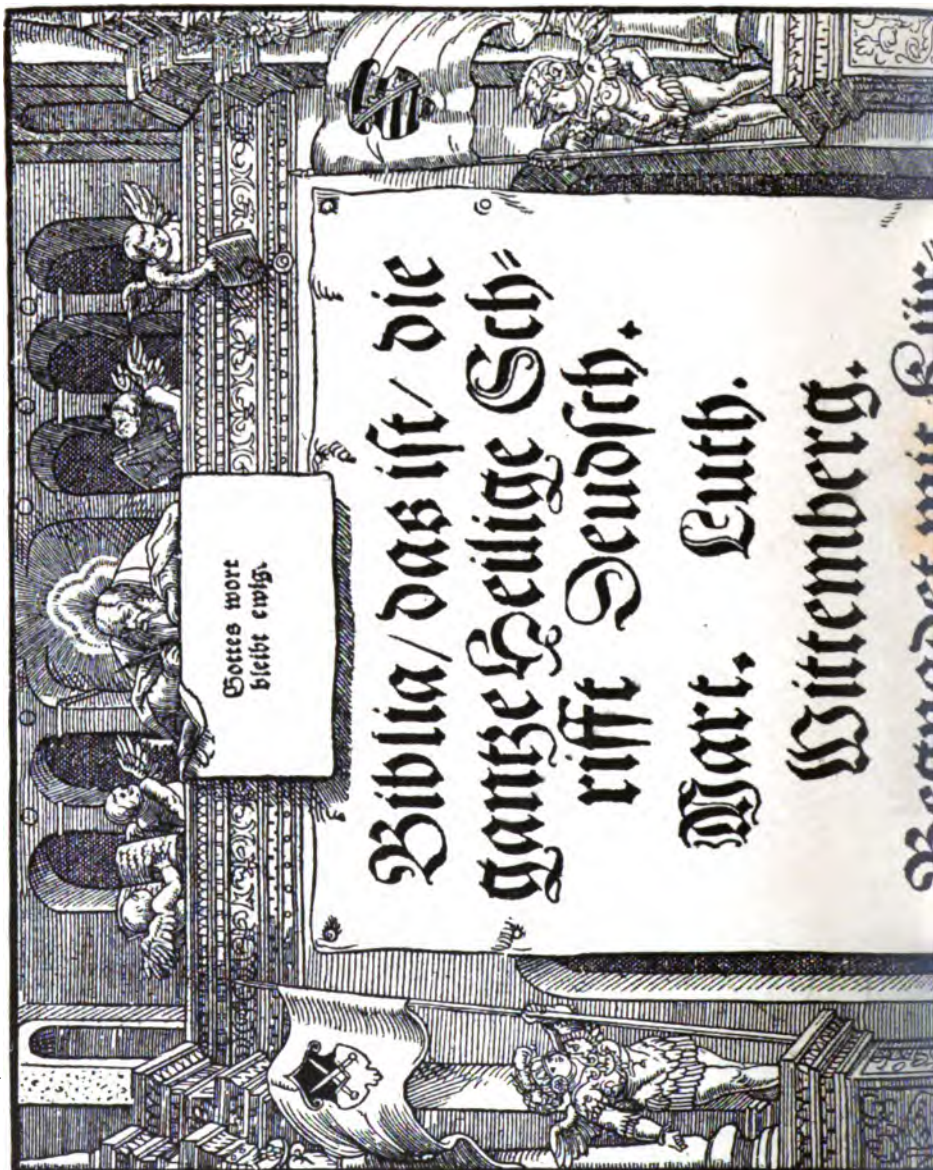 Gottes wort
bleibt ewig.
Biblia/das ist/ die
gantze Heilige Sch=
rifft Deudsch.
Mart. Luth.
Wittemberg.
Begnadet mit Kür=